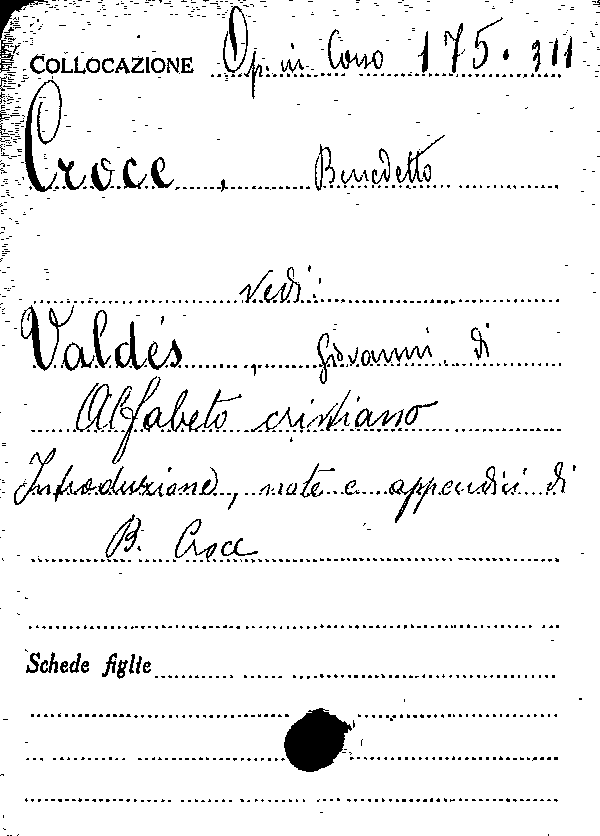 COLLOCAZIONE Op. in Corso 175. 311
Croce, Benedetto
vedi:
Valdés, Giovanni di
Alfabeto cristiano
Introduzione, note e appendici di
B. Croce
Schede figlie